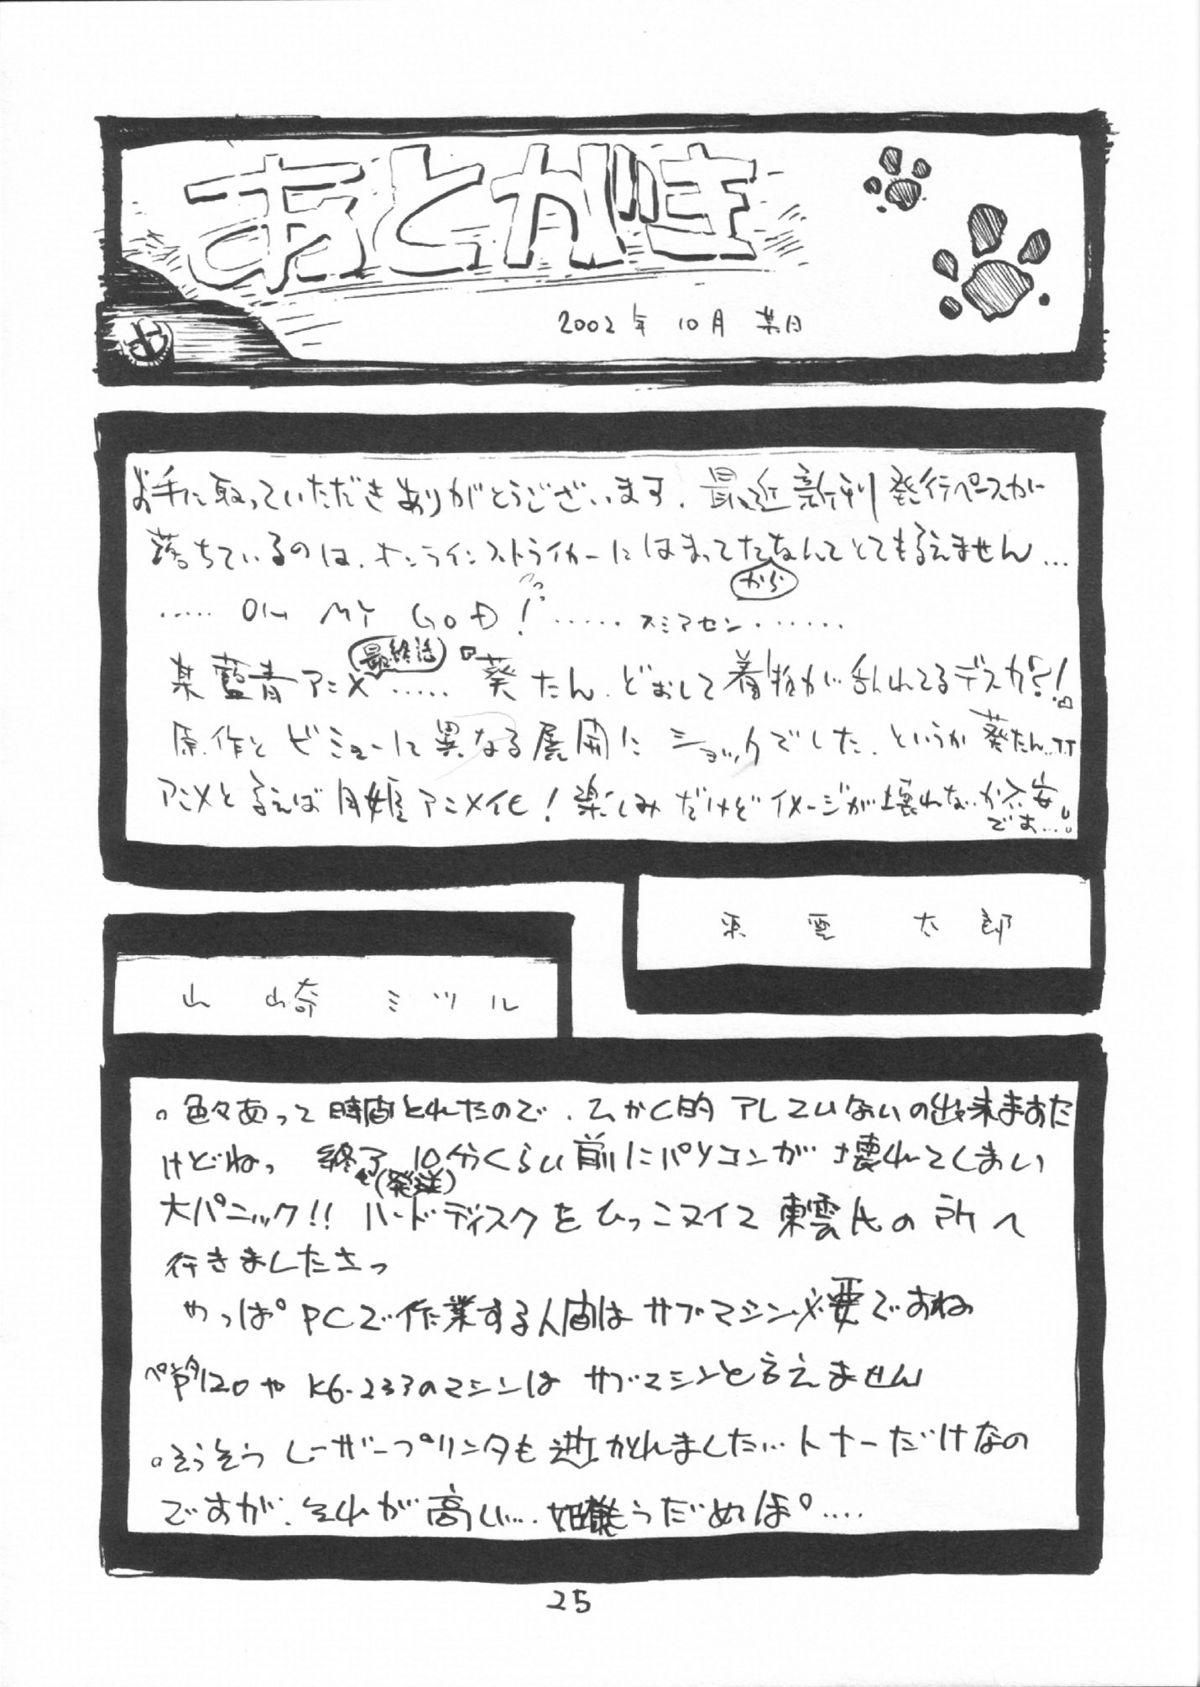 あとがき
2002年 10月 某日
お手に取っていただきありがとうございます. 最近新刊発行ペースが
落ちているのは、オンラインストライカーにはまってたからなんてとても言えません…
…… OH MY GOD! …… スミマセン ……
某藍青アニメ最終話…… 葵たん、どおして着物が乱れてるデスカ!
原作とビミョーに異なる展開にショックでした、というか葵たん…
アニメと言えば月姫アニメ化! 楽しみだけどイメージが壊れないか不安
です…
東雲 太郎
山崎 ミツル
。色々あって時間とれたので、
けどねっ 終了(発送) 10分くらい前にパソコンが壊れてしまい
大パニック!! ハードディスクをひっこヌイて東雲氏の所へ
行きましたさっ
やっぱPCで作業する人間はサブマシン必要ですね
120やK6-233のマシンはサブマシンと言えません
。そうそうレーザープリンタも逝かれました… トナーだけなの
ですが、それが高い… だめぽ…
25